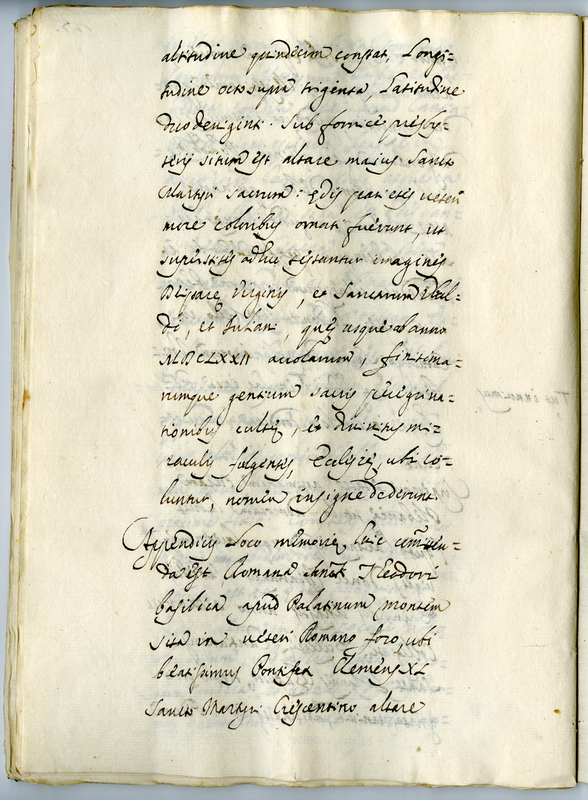 altitudine quindecim constat, Longi=
tudine octosupra triginta, Latitudine
duodeviginti. Sub fornice presby=
terij situm est altare maius Sancto
Martyri sacrum: ędis parietes veteri
more coloribus ornati fuerunt, ut
superstites adhuc testantur imagines
Btissaeę Virginis, et Sanctorum Ubal=
di, et Juliani, quę usque ab anno
MDCLXXII accolarum, finitima=
rumque gentium sacris peregrina=
tionibus cultę, et divinitus mi=
raculis fulgentes, Ecclesię, ubi co=
luntur, nomen insigne dederunt.
Appendicis loco memorię huic commen=
da est Romana Sancti Theodori
basilica apud Palatinum montem
sita in veteri Romano foro, ubi
beatissimus Pontifex Clemens XI.
Sancto Martyri Crescentino altare